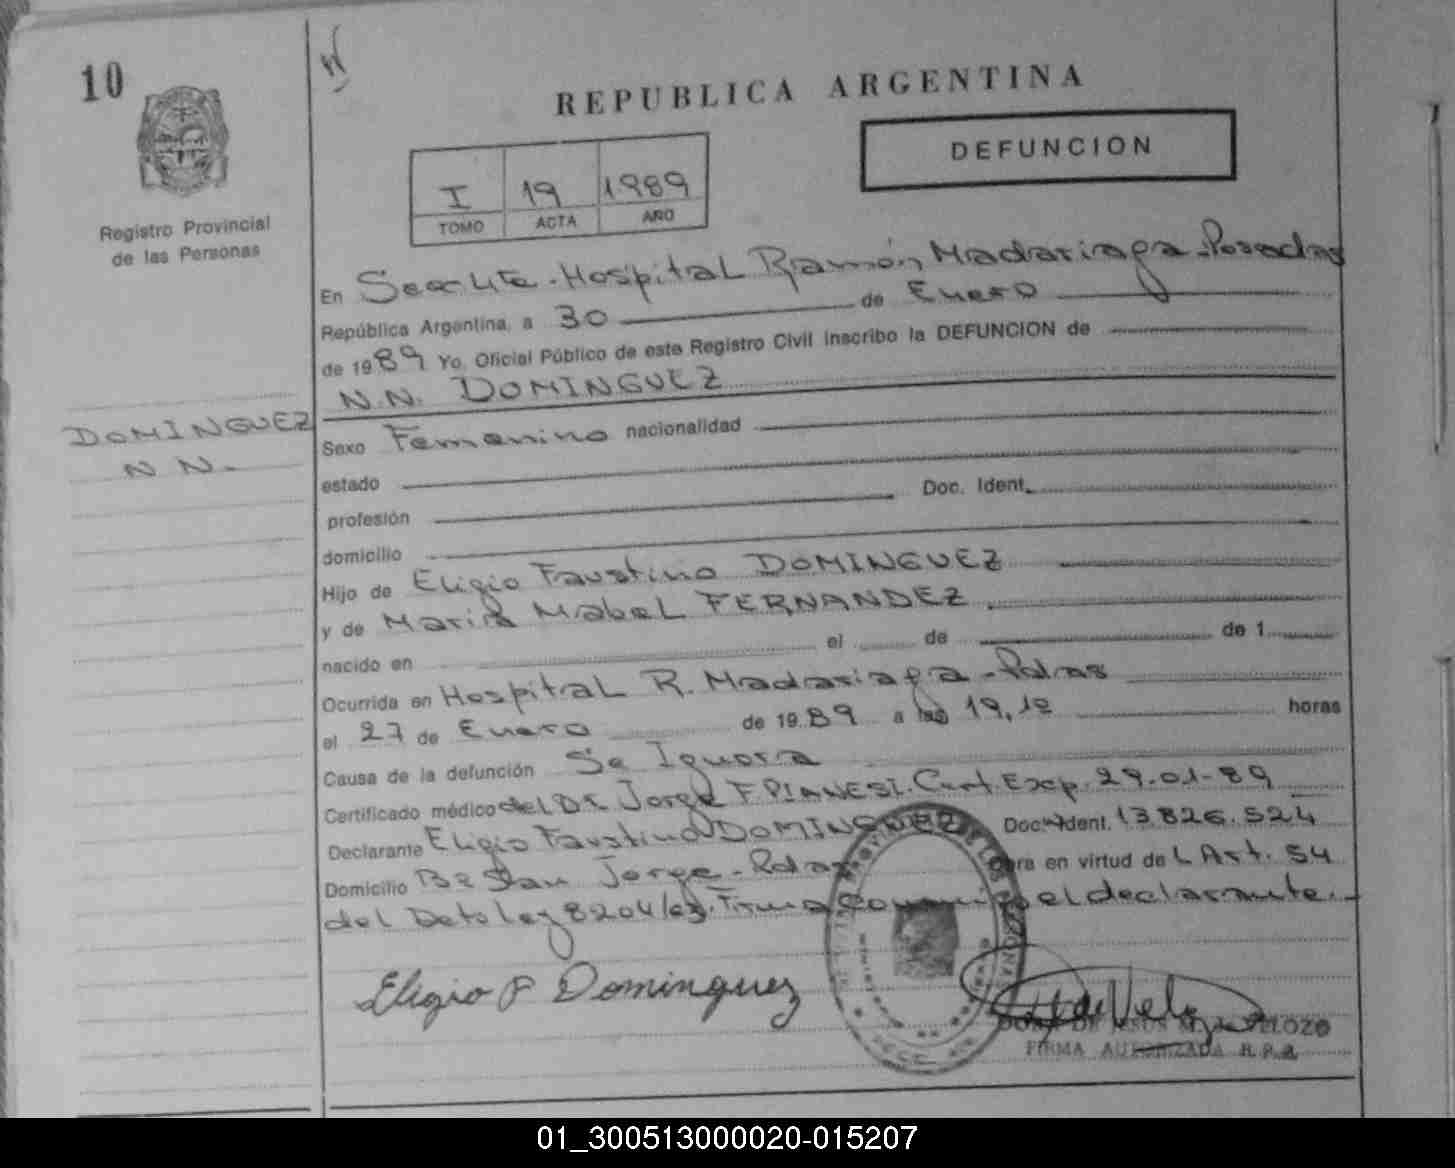 10
REPUBLICA ARGENTINA
DEFUNCION
I 19 1989
TOMO ACTA AÑO
Registro Provincial
de las Personas
En Hospital Ramón Madariaga - Posadas
República Argentina, a 30 de Enero
de 1989 Yo, Oficial Público de este Registro Civil inscribo la DEFUNCION de
N.N. DOMINGUEZ
DOMINGUEZ
N N.
Sexo Femenino nacionalidad
estado
profesión Doc. Ident.
domicilio
Hijo de Eligio Faustino DOMINGUEZ
y de Maria Mabel FERNANDEZ
nacido en el de de 1
Ocurrida en Hospital R. Madariaga - Pdas
el 27 de Enero de 1989 a las 19,10 horas
Causa de la defunción Se Ignora
Certificado médico del Dr. Jorge F. PIANESI. Cert. Exp. 29-01-89
Declarante Eligio Faustino DOMINGUEZ Doc. Ident. 13.826.524
Domicilio Bº San Jorge - Pdas Obra en virtud de L Art. 54
del Deto Ley 8204/63. Firma conmigo el declarante.-
Eligio F Dominguez
FIRMA AUTORIZADA R.P.P.
01_300513000020-015207